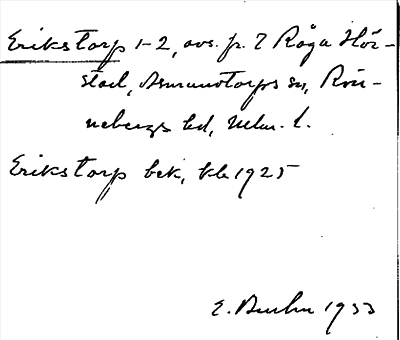 Erikstorp 1-2, avs. fr. 7 Röga Hör-
stad, Asmundtorps sn, Rön-
nebergs hd, Mlm. l.
Erikstorp bek, kb 1925
E. 1933